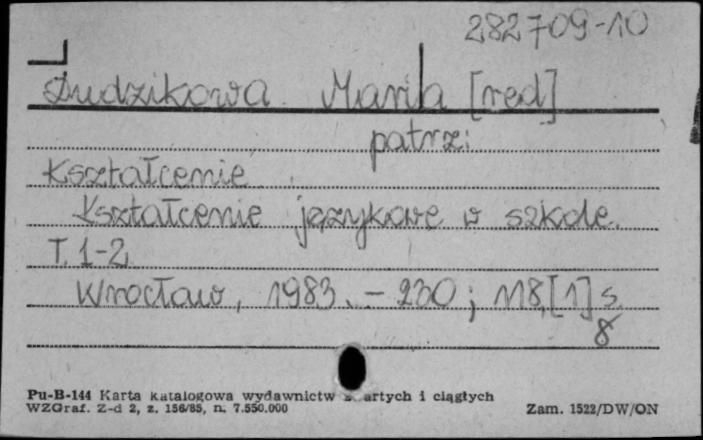 282709-10
Dudzikowa Maria [red]
patrz:
Kształcenie
Kształcenie językowe w szkole.
T. 1-2.
Wrocław, 1983. - 230; 118,[1] s.
8
Pu-B-144 Karta katalogowa wydawnictw artych i ciągłych
WZGraf. Z-d 2, z. 156/85, n. 7.550.000
Zam. 1522/DW/ON